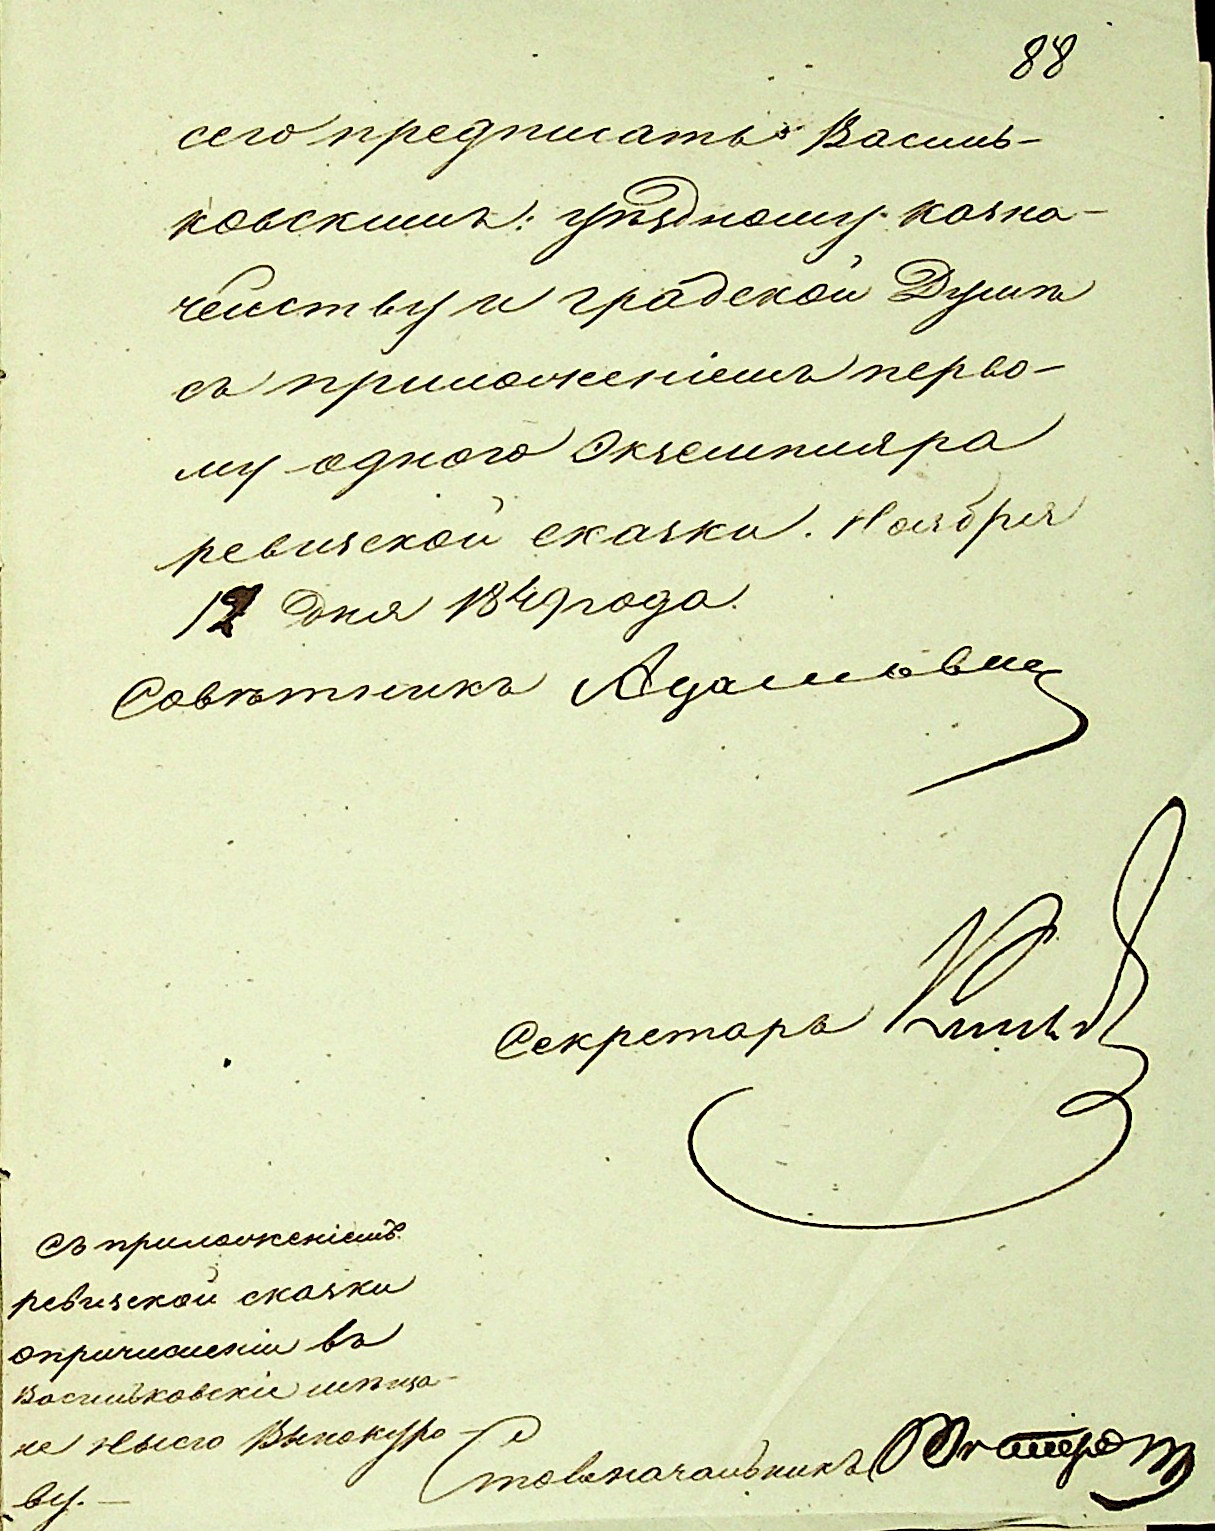 88
сего предписать Василь-
ковскимъ: уѣздному казна-
чейству и градской Думѣ
съ приложеніемъ перво-
му одного экземпляра
ревизской сказки. Ноября
12 дня 1849 года.
Совѣтникъ Адамович
Секретарь
Съ приложеніемъ
ревизской сказки
о причисленіи въ
Васильковскіе мѣща-
не
ву.
Столоначальникъ